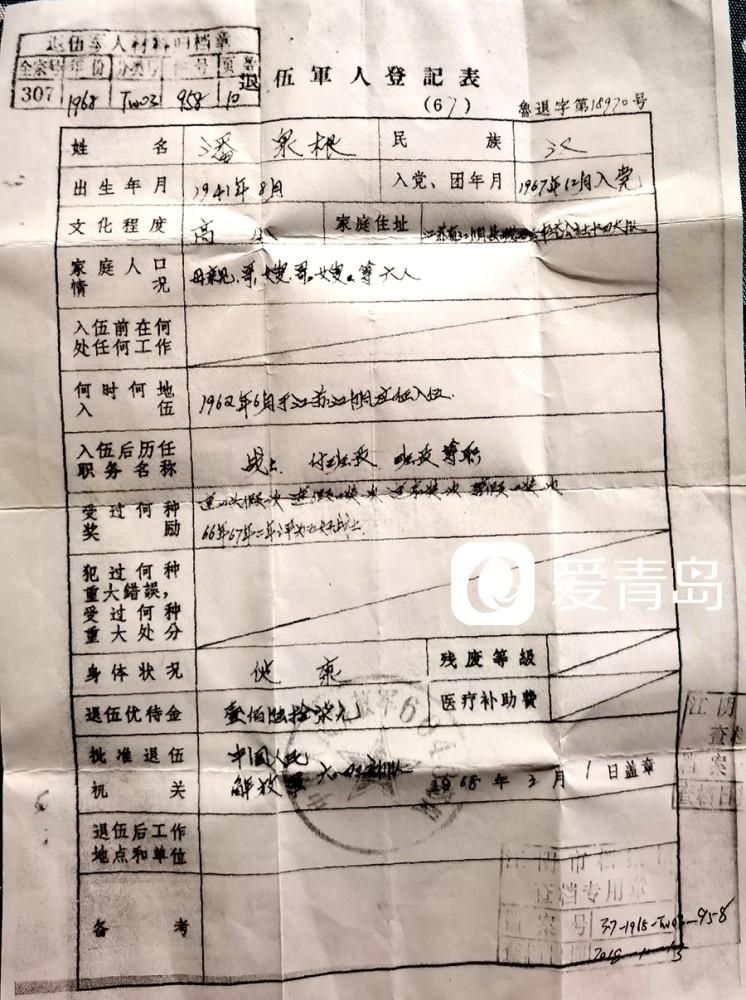 退伍军人材料归档章
全案号 年份 分类号 件号 页号
307 1968 TW03 958 10
退伍軍人登記表
(67)
魯退字第18970号
姓名 潘泉根 民族 汉
出生年月 1941年8月 入党、团年月 1967年12月入党
文化程度 高小 家庭住址 江苏省江阴县
家庭人口情况 母亲 哥,嫂 哥。嫂。等六人
入伍前在何处任何工作
何时何地入伍 1962年6月于江苏江阴应征入伍.
入伍后历任职务名称 战士 付班长 班长等职
受过何种奖励
66年67年二年评为五好战士
犯过何种重大错誤,受过何种重大处分
身体状况 健康 残废等級
退伍优待金 壹佰陆拾柒元 医疗补助费
批准退伍机关 中国人民解放军 1968年3月1日盖章
退伍后工作地点和单位
备考
爱青岛
江阴
查档
档案
查档日
江阴市档案
查档专用章
档案号 37-1968-TW03-958
查档日期 2018-10-15